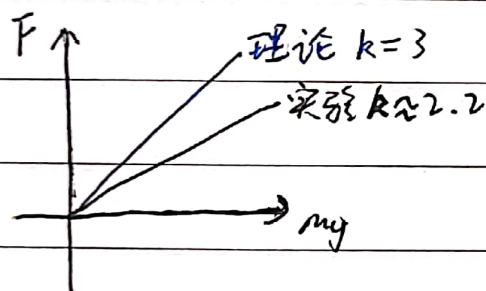 F
理论 k=3
实验 k≈2.2
mg